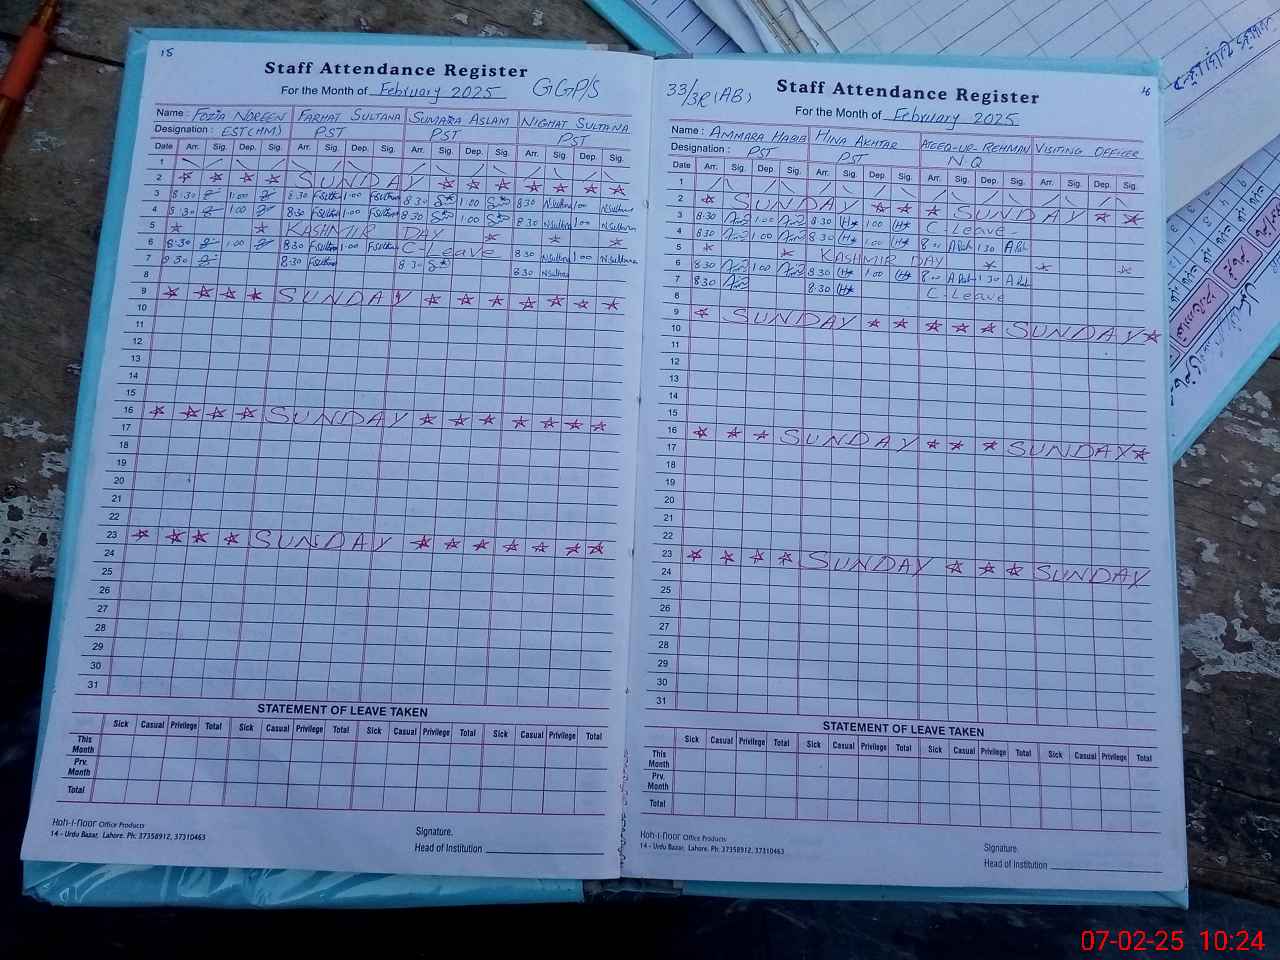 15
Staff Attendance Register
For the Month of February 2025 GGP/S
Name : FOZIA NOREEN FARHAT SULTANA SUMAIRA ASLAM NIGHAT SULTANA
Designation : EST(HM) PST PST PST
Date Arr. Sig. Dep. Sig. Arr. Sig. Dep. Sig. Arr. Sig. Dep. Sig. Arr. Sig. Dep. Sig.
1
2 SUNDAY
3 8:30 1:00 8:30 1:00 8:30 1:00 8:30 N.Sultana 1:00 N.Sultana
4 8:30 1:00 8:30 1:00 8:30 1:00 8:30 N.Sultana 1:00 N.Sultana
5 KASHMIR DAY
6 8:30 1:00 8:30 1:00 C-Leave 8:30 N.Sultana 1:00 N.Sultana
7 8:30 8:30 8:30 8:30 N.Sultana
8
9 SUNDAY
10
11
12
13
14
15
16 SUNDAY
17
18
19
20
21
22
23 SUNDAY
24
25
26
27
28
29
30
31
STATEMENT OF LEAVE TAKEN
Sick Casual Privilege Total Sick Casual Privilege Total Sick Casual Privilege Total Sick Casual Privilege Total
This Month
Prv. Month
Total
Hoh-i-Noor Office Products
14 - Urdu Bazar, Lahore. Ph: 37358912, 37310463
Signature.
Head of Institution
16
33/3R (AB)
Staff Attendance Register
For the Month of February 2025
Name : AMMARA HABIB HINA AKHTAR ATEEQ-UR-REHMAN VISITING OFFICER
Designation : PST PST N.Q
Date Arr. Sig. Dep. Sig. Arr. Sig. Dep. Sig. Arr. Sig. Dep. Sig. Arr. Sig. Dep. Sig.
1
2 SUNDAY SUNDAY
3 8:30 1:00 8:30 1:00 C-Leave
4 8:30 1:00 8:30 1:00 8:00 1:30
5 KASHMIR DAY
6 8:30 1:00 8:30 1:00 8:00 1:30
7 8:30 8:30 C-Leave
8
9 SUNDAY SUNDAY
10
11
12
13
14
15
16 SUNDAY SUNDAY
17
18
19
20
21
22
23 SUNDAY SUNDAY
24
25
26
27
28
29
30
31
STATEMENT OF LEAVE TAKEN
Sick Casual Privilege Total Sick Casual Privilege Total Sick Casual Privilege Total Sick Casual Privilege Total
This Month
Prv. Month
Total
Hoh-i-Noor Office Products
14 - Urdu Bazar, Lahore. Ph: 37358912, 37310463
Signature.
Head of Institution
07-02-25 10:24